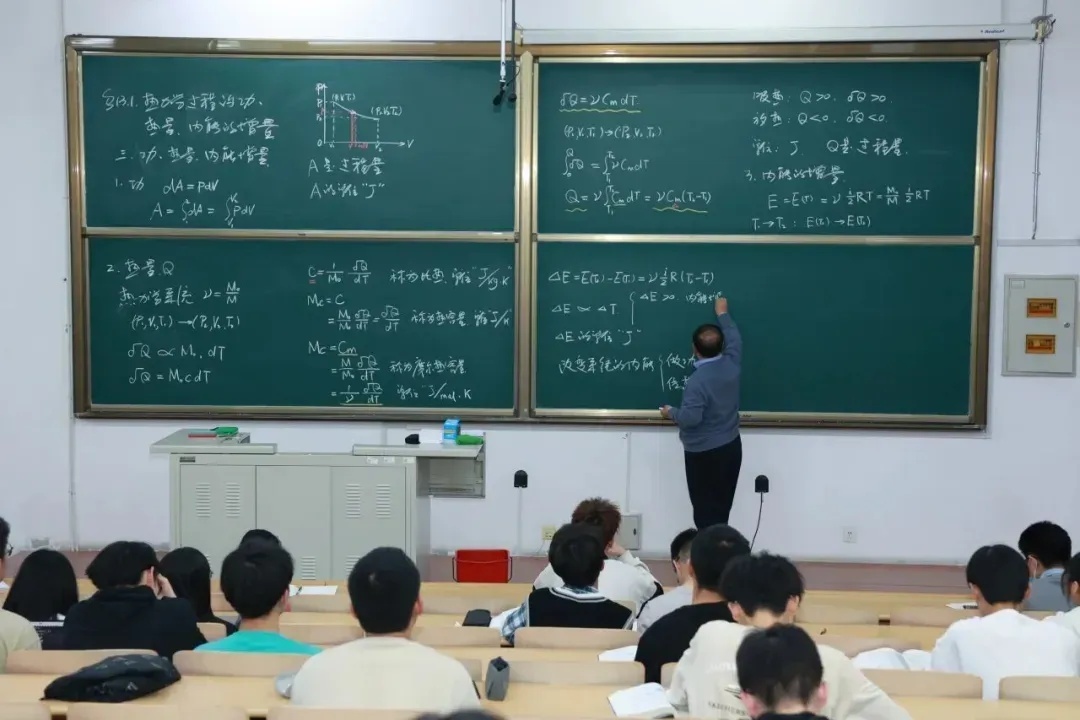 §13.1. 热力学过程的功、
热量、内能的增量
三. 功、热量、内能增量
1. 功 dA = PdV
A = ∫dA = ∫PdV
P
V
0
A是过程量
A的单位"J"
2. 热量 Q
热力学系统 ν = M/M₀
(P₁V₁T₁) → (P₂V₂T₂)
đQ ∝ M₀, dT
đQ = M₀cdT
C = 1/M₀ đQ/dT 称为比热, 单位"J/kg·K"
Mc = C
đQ/dT = đQ/dT 称为热容量, 单位"J/K"
Mc = Cm
đQ/dT 称为摩尔热容量
= 1/ν đQ/dT 单位"J/mol·K"
đQ = νCmdT
(P₁V₁T₁) → (P₂V₂T₂)
∫đQ = ∫νCmdT
Q = ν∫CmdT = νCm(T₂-T₁)
吸热: Q>0, đQ>0
放热: Q<0, đQ<0
单位: J Q是过程量
3. 内能的增量
E = E(T) = ν i/2 RT = M₀/M i/2 RT
T₁→T₂: E(T₁)→E(T₂)
ΔE = E(T₂)-E(T₁) = ν i/2 R(T₂-T₁)
ΔE ∝ ΔT { ΔE>0 内能
ΔE的单位"J"
改变系统的内能 { 做功